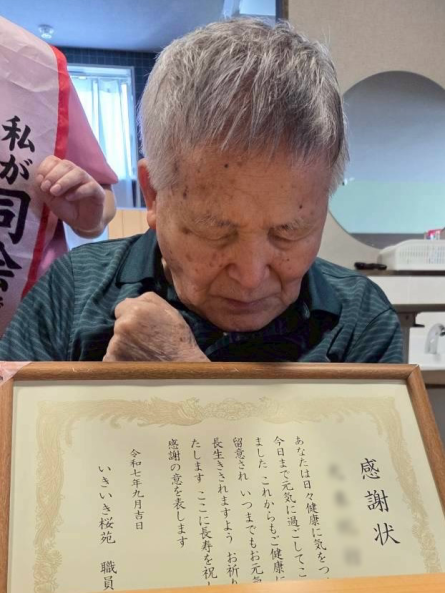 私が司会
感謝状
あなたは日々健康に気をつ
今日まで元気に過ごしてこ
ました これからもご健康に
留意され いつまでもお元気
長生きされますよう お祈り
たします ここに長寿を祝
感謝の意を表します
令和七年九月吉日
いきいき桜苑 職員